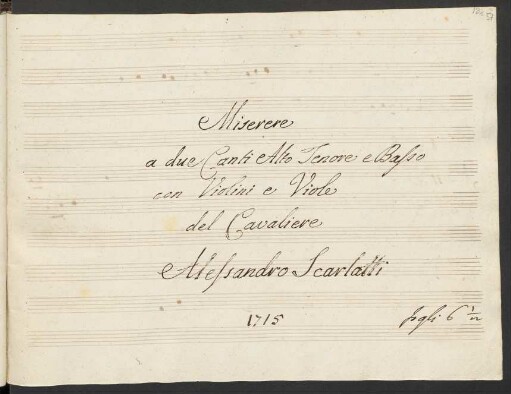 Miserere
a due Canti Alto Tenore e Basso
con Violini e Viole
del Cavaliere
Alessandro Scarlatti
1715
fogli 6 1/2